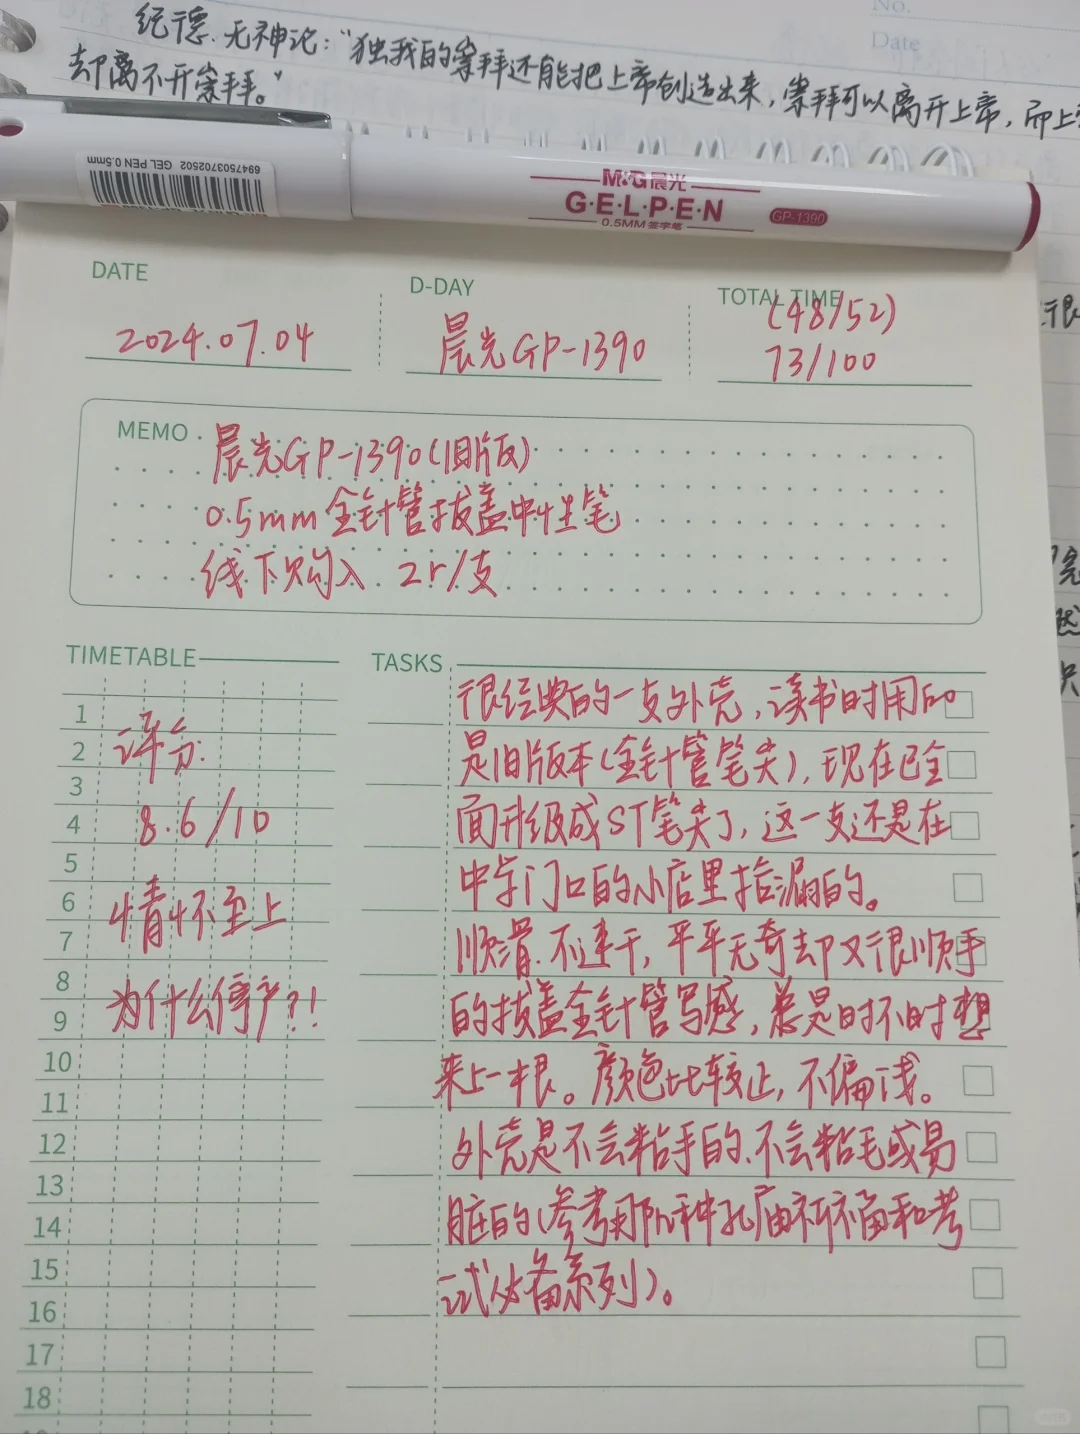 No.
Date
纪德.无神论："独我的崇拜还能把上帝创造出来，崇拜可以离开上帝，而上
却离不开崇拜。"
6947503702502 GEL PEN 0.5mm
M&G晨光
G·E·L·P·E·N
GP-1390
0.5MM 签字笔
DATE
D-DAY
TOTAL TIME
2024.07.04
晨光GP-1390
(48/52)
73/100
MEMO
晨光GP-1390(旧版)
0.5mm全针管拔盖中性笔
线下购入 2r/支
TIMETABLE
1
2
3
4
5
6
7
8
9
10
11
12
13
14
15
16
17
18
评分:
8.6/10
情怀至上
为什么停产?!
TASKS
很经典的一支外壳，读书时用的
是旧版本(全针管笔尖)，现在已全
面升级成ST笔尖了，这一支还是在
中学门口的小店里捡漏的。
顺滑.不速干，平平无奇却又很顺手
的拔盖全针管写感，总是时不时想
来上一根。颜色比较正，不偏浅。
外壳是不会粘手的、不会粘毛或易
脏的(参考那种孔庙祈福和考
试必备系列)。